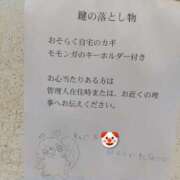 鍵の落とし物
おそらく自宅のカギ
モモンガのキーホルダー付き
お心当たりある方は
管理人在住時または、お近くの理
事へお伝えください。